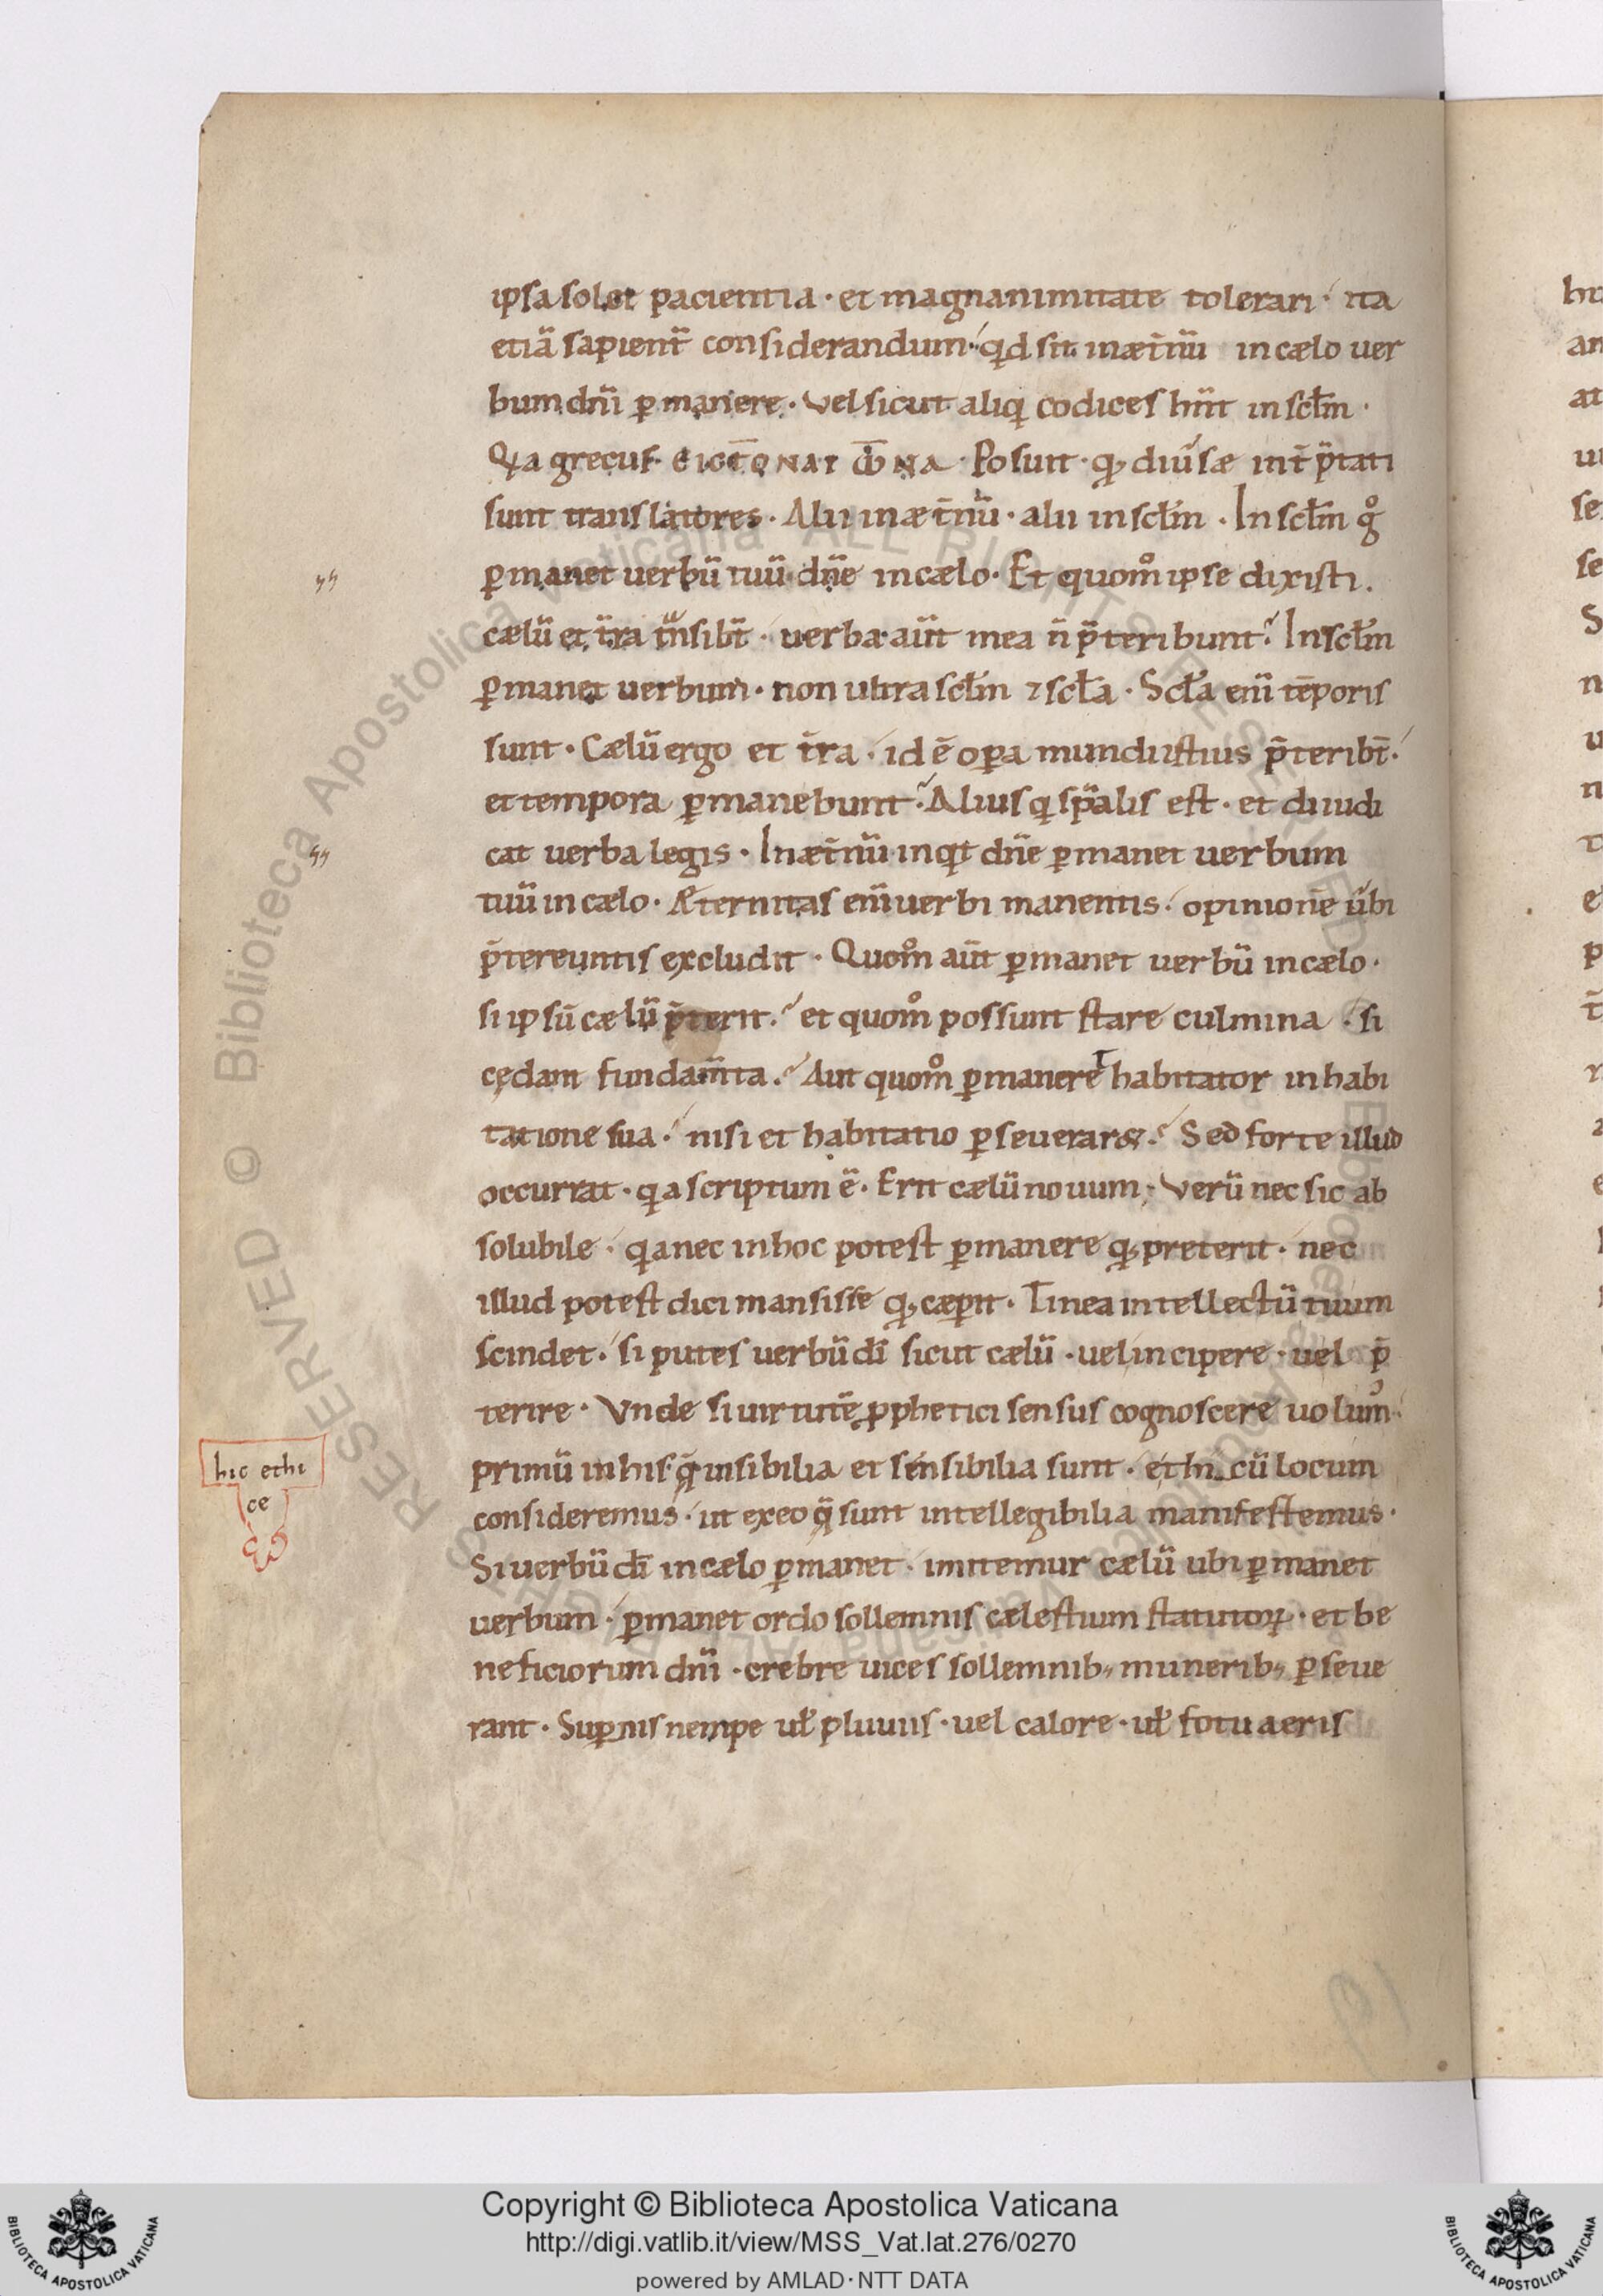 ipsa solet pacientia · et magnanimitate tolerari · ita
etiā sapient̄ considerandum · qd sit inæt̄nū in cælo uer
bum dn̄i ꝑmanere · Vel sicut aliq codices hn̄t in scl̄m ·
Qa grecus · Posunt · diūsæ int̄p̄tati
sunt translatores · Alii inæt̄nū · alii in scl̄m · In scl̄m gͦ
ꝑmanet uerbū tuū dn̄e in cælo · Et quom̊ ipse dixisti .
cælū et t̄ra t̄nsibt̄ · uerba aūt mea n̄ p̄teribunt? In scl̄m
ꝑmanet uerbum · non ultra scl̄m ⁊ scl̄a · Scl̄a enī tēporis
sunt · Cælū ergo et t̄ra · id ē oꝑa mundi istius p̄teribt̄ ·
et tempora ꝑmanebunt? Alius q sp̄alis est · et diiudi
cat uerba legis · Inæt̄nū inqt dn̄e ꝑmanet uerbum
tuū in cælo · Æternitas enī uerbi manentis · opinionē ūbi
p̄tereuntis excludit · Quom̊ aūt ꝑmanet uerbū in cælo ·
si ipsū cælū p̄terit? et quom̊ possunt stare culmina · si
cędant fundam̄ta? Aut quom̊ ꝑmaneret habitator in habi
tatione sua · nisi et habitatio ꝑseuerar&? Sed forte illud
occurrat · qa scriptum ē · Erit cælū nouum · Verū nec sic ab
solubile · qa nec in hoc potest ꝑmanere qͅ preterit · nec
illud potest dici mansisse qͅ cæpit · Tinea intellectū tuum
scindet · si putes uerbū dī sicut cælū · uel incipere · uel p̄
terire · Vnde si uirtutē ꝓphetici sensus cognoscere uolum᾽
primū in his q̄ uisibilia et sensibilia sunt · ethicū locum
consideremus · ut ex eo q̄ sunt intellegibilia manifestemus ·
Si uerbū dī in cælo ꝑmanet · imitemur cælū ubi ꝑmanet
uerbum · ꝑmanet ordo sollemnis cælestium statutoꝝ · et be
neficiorum dn̄i · crebre uices sollemnib; munerib; ꝑseue
rant · Suꝑnis nempe ul̄ pluuiis · uel calore · ul̄ fotu aeris
hic ethi
ce
Copyright © Biblioteca Apostolica Vaticana
http://digi.vatlib.it/view/MSS_Vat.lat.276/0270
powered by AMLAD·NTT DATA